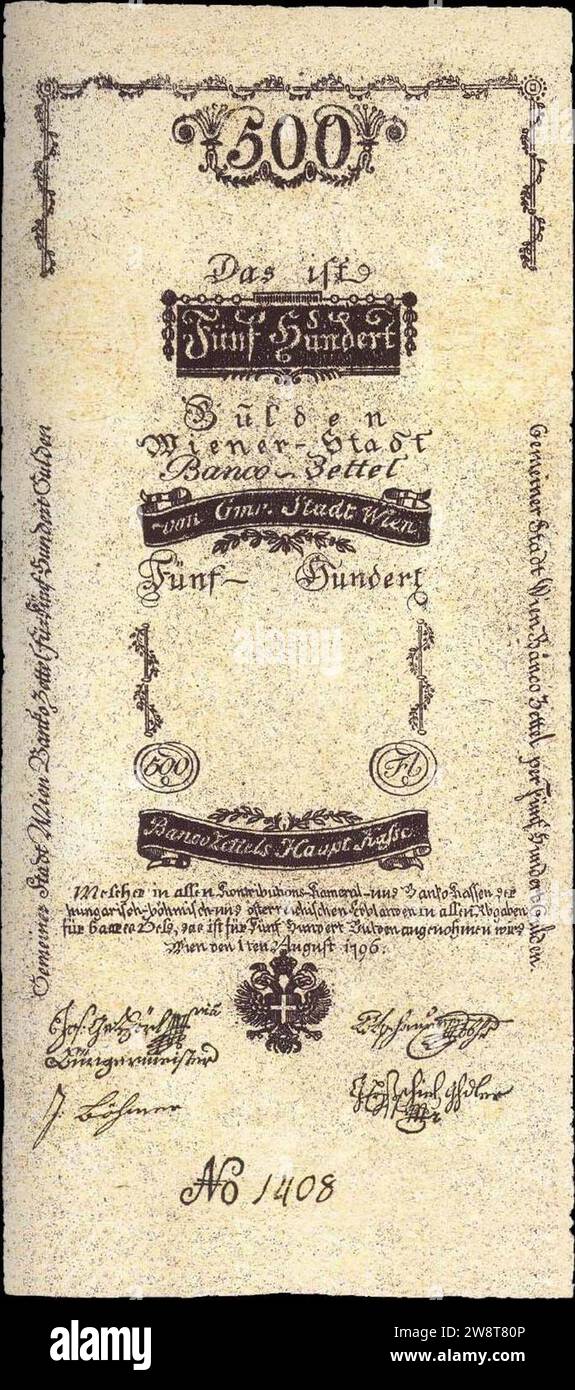 500
Das ist
Fünf Hundert
Gülden
Wiener-Stadt
Banco-Zettel
von Gmr. Stadt Wien
Fünf- Hundert
500 Fl
Banco Zettels Haupt Kasse
Welcher in allen Kontributions-Kameral-und Banko Kassen der
hungarisch-böhmisch-und österreichischen Erblanden in allen Abgaben
für baares Geld, das ist für Fünf Hundert Gulden angenohmen wird
Wien den 1ten August 1796.
Gemeiner Stadt Wien Banko Zettel für Fünf Hundert Gulden
Gemeiner Stadt Wien Banco Zettel per Fünf Hundert Gulden.
Bürgermeister
J. Böhmer
No 1408
alamy
alamy
Image ID: 2W8T80P
www.alamy.com